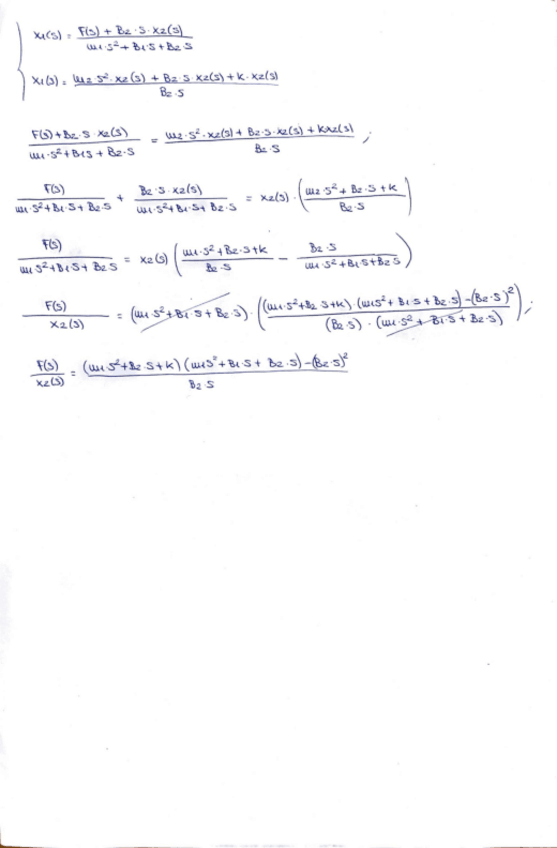 x₁(s) = (F(s) + B₂·s·x₂(s)) / (m₁·s² + B₁·s + B₂·s)
x₁(s) = (m₂·s²·x₂(s) + B₂·s·x₂(s) + k·x₂(s)) / (B₂·s)
(F(s) + B₂·s·x₂(s)) / (m₁·s² + B₁s + B₂·s) = (m₂·s²·x₂(s) + B₂·s·x₂(s) + kx₂(s)) / (B₂·s) ;
F(s) / (m₁·s² + B₁·s + B₂s) + (B₂·s·x₂(s)) / (m₁·s² + B₁·s + B₂·s) = x₂(s)·((m₂·s² + B₂·s + k) / (B₂·s))
F(s) / (m₁s² + B₁s + B₂s) = x₂(s) ((m₁·s² + B₂·s + k) / (B₂·s) − (B₂·s) / (m₁·s² + B₁s + B₂s))
F(s) / x₂(s) = (m₁·s² + B₁·s + B₂·s)·(((m₁·s² + B₂·s + k)·(m₁s² + B₁·s + B₂·s) − (B₂·s)²) / ((B₂·s)·(m₁·s² + B₁·s + B₂·s))) ;
F(s) / x₂(s) = ((m₁·s² + B₂·s + k)(m₁s² + B₁·s + B₂·s) − (B₂·s)²) / (B₂·s)